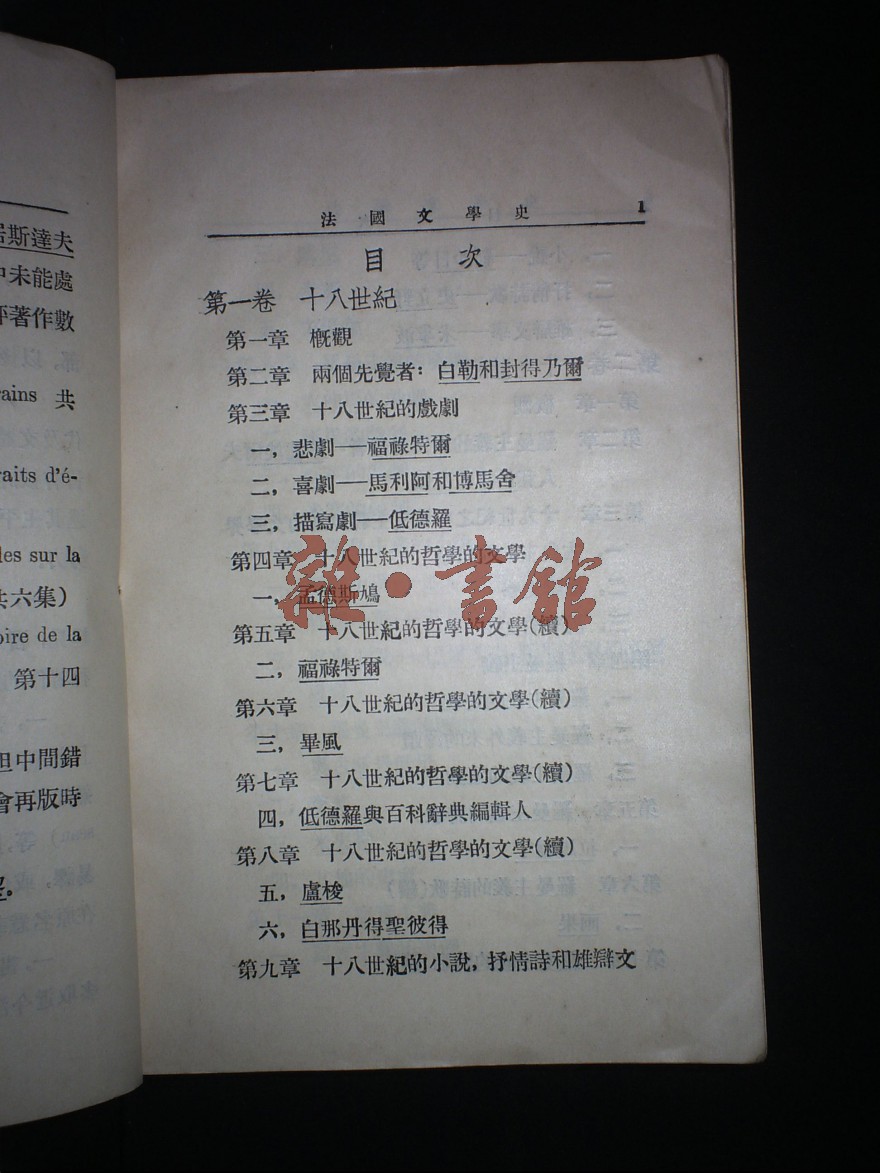 居斯達夫
中未能處
評著作數
ains 共
raits d'é-
les sur la
共六集)
oire de la
第十四
但中間錯
會再版時
法國文學史 1
目次
第一卷 十八世紀
第一章 概觀
第二章 兩個先覺者：白勒和封得乃爾
第三章 十八世紀的戲劇
一，悲劇——福祿特爾
二，喜劇——馬利阿和博馬舍
三，描寫劇——低德羅
第四章 十八世紀的哲學的文學
一，孟德斯鳩
第五章 十八世紀的哲學的文學(續)
二，福祿特爾
第六章 十八世紀的哲學的文學(續)
三，畢風
第七章 十八世紀的哲學的文學(續)
四，低德羅與百科辭典編輯人
第八章 十八世紀的哲學的文學(續)
五，盧梭
六，白那丹得聖彼得
第九章 十八世紀的小說，抒情詩和雄辯文
雜·書館